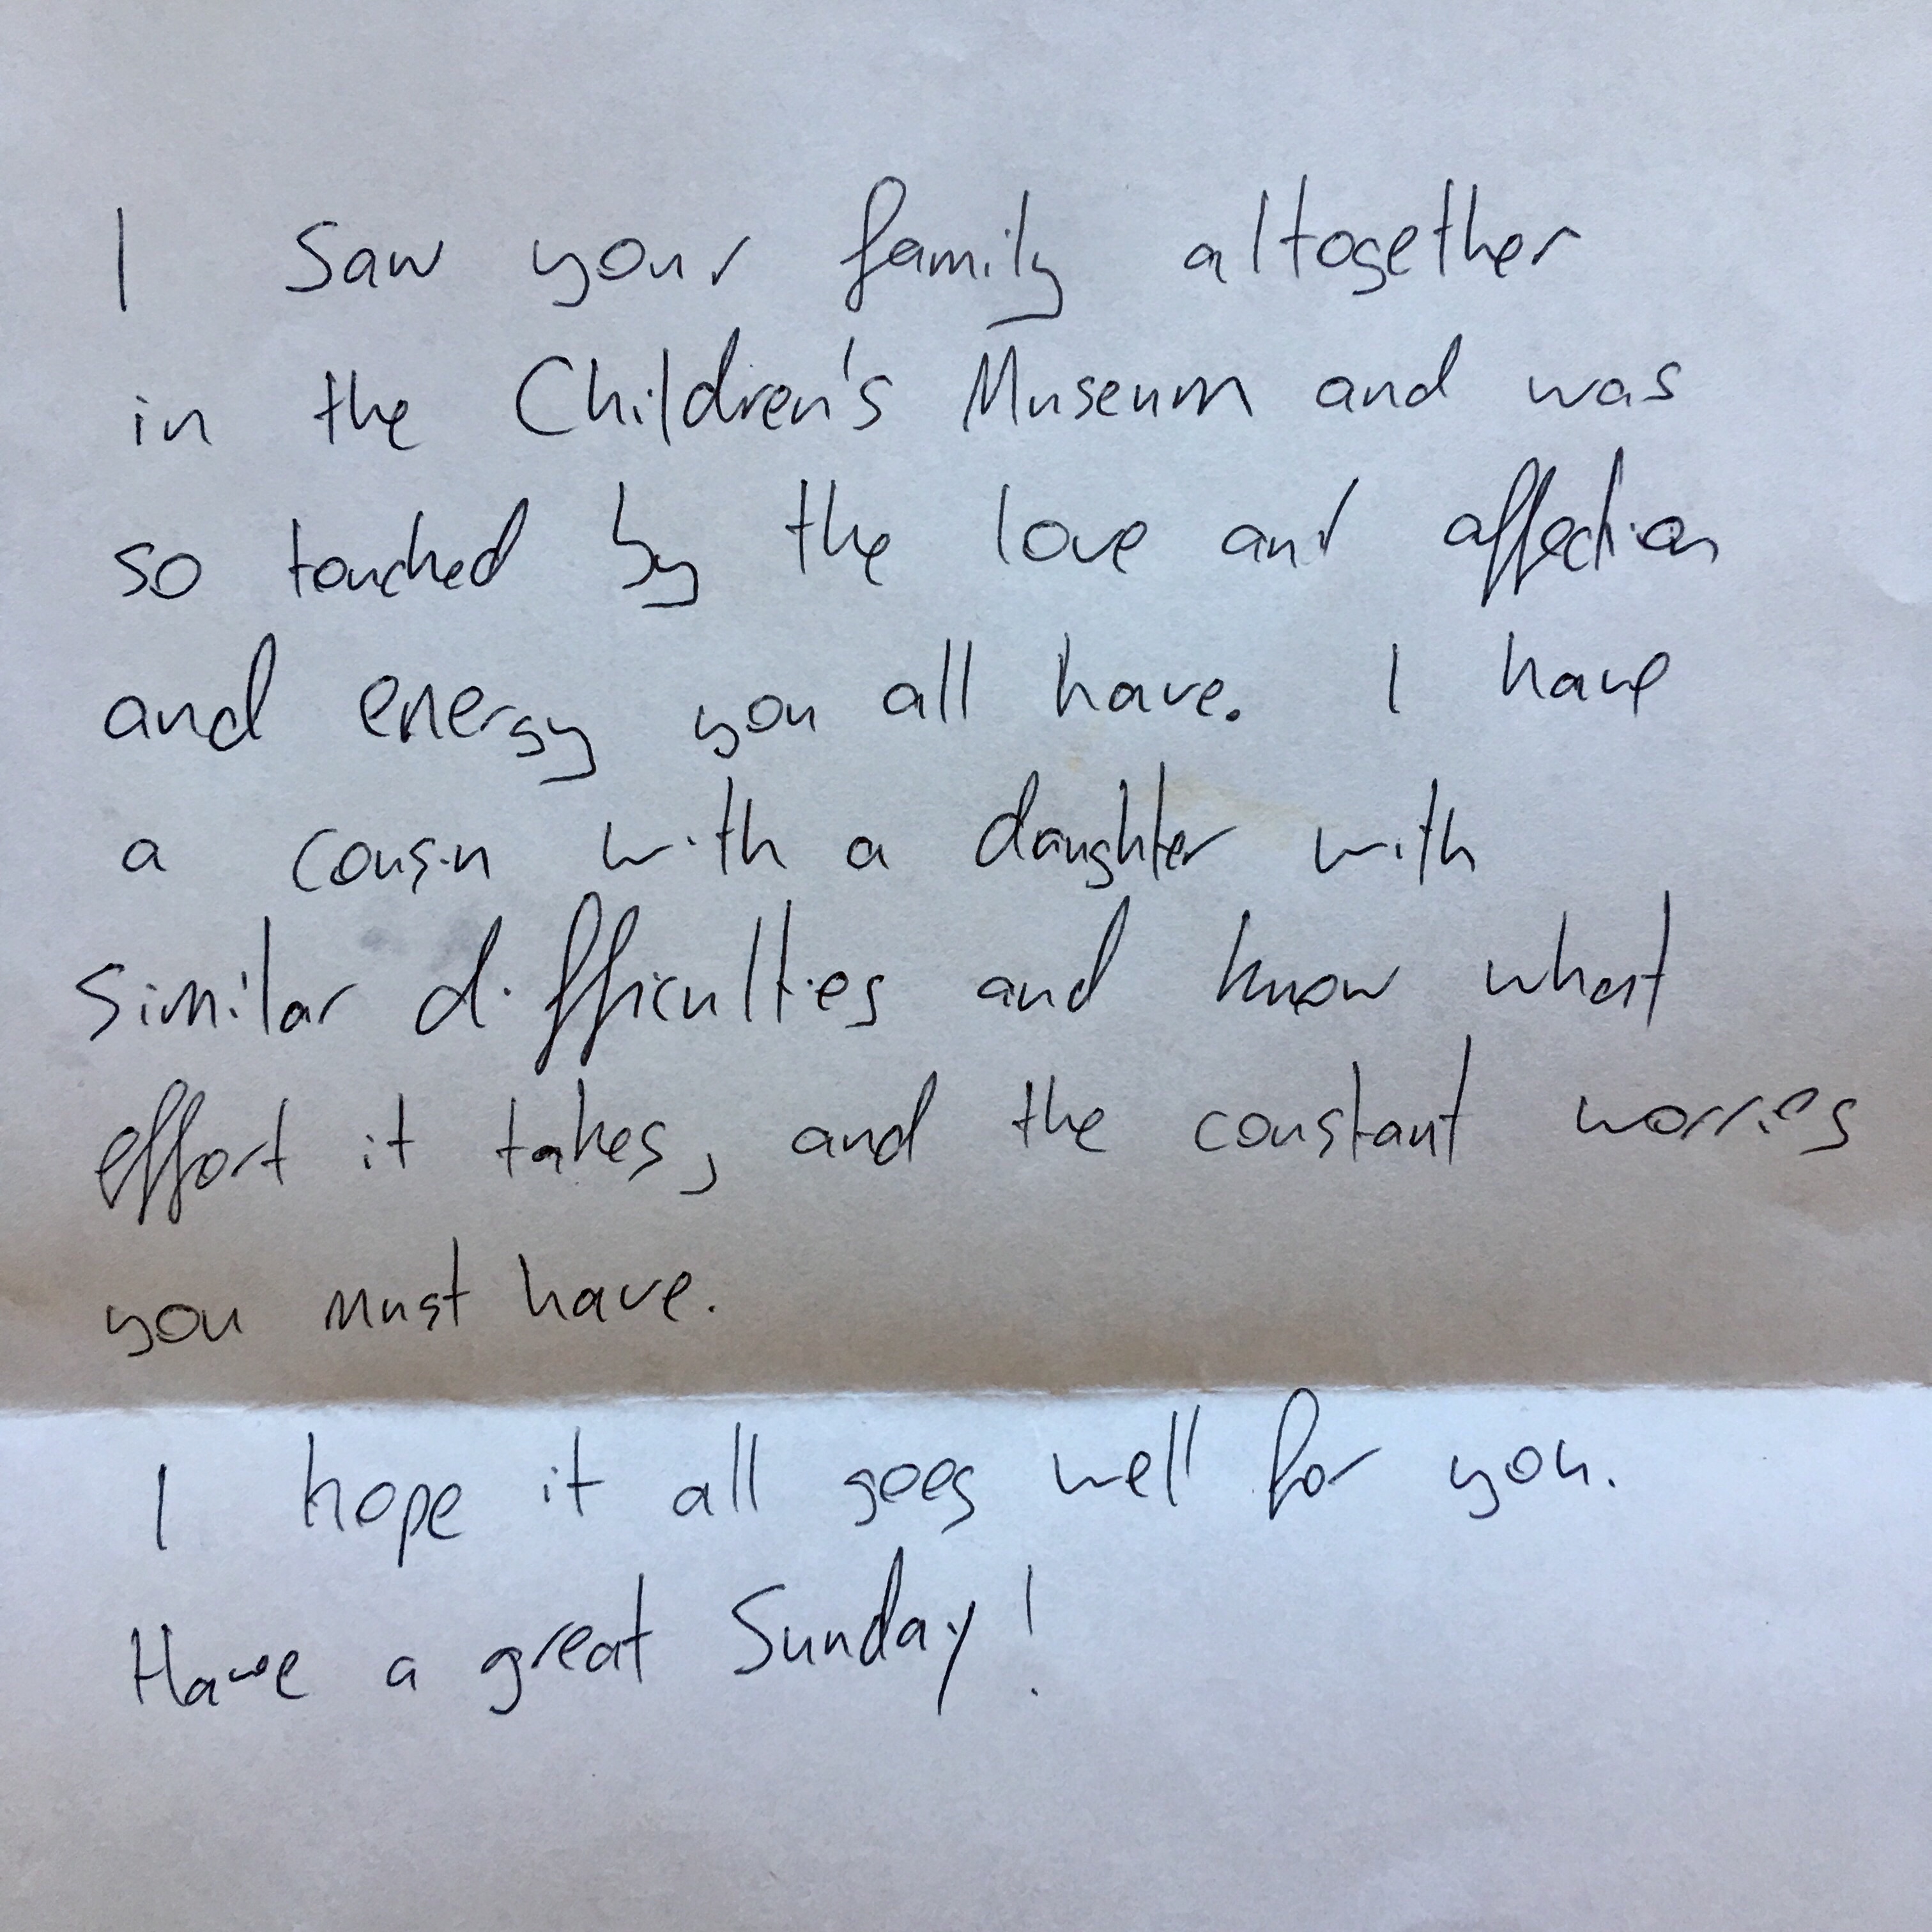 I saw your family altogether
in the Children's Museum and was
so touched by the love and affection
and energy you all have. I have
a cousin with a daughter with
similar difficulties and know what
effort it takes, and the constant worries
you must have.
I hope it all goes well for you.
Have a great Sunday!